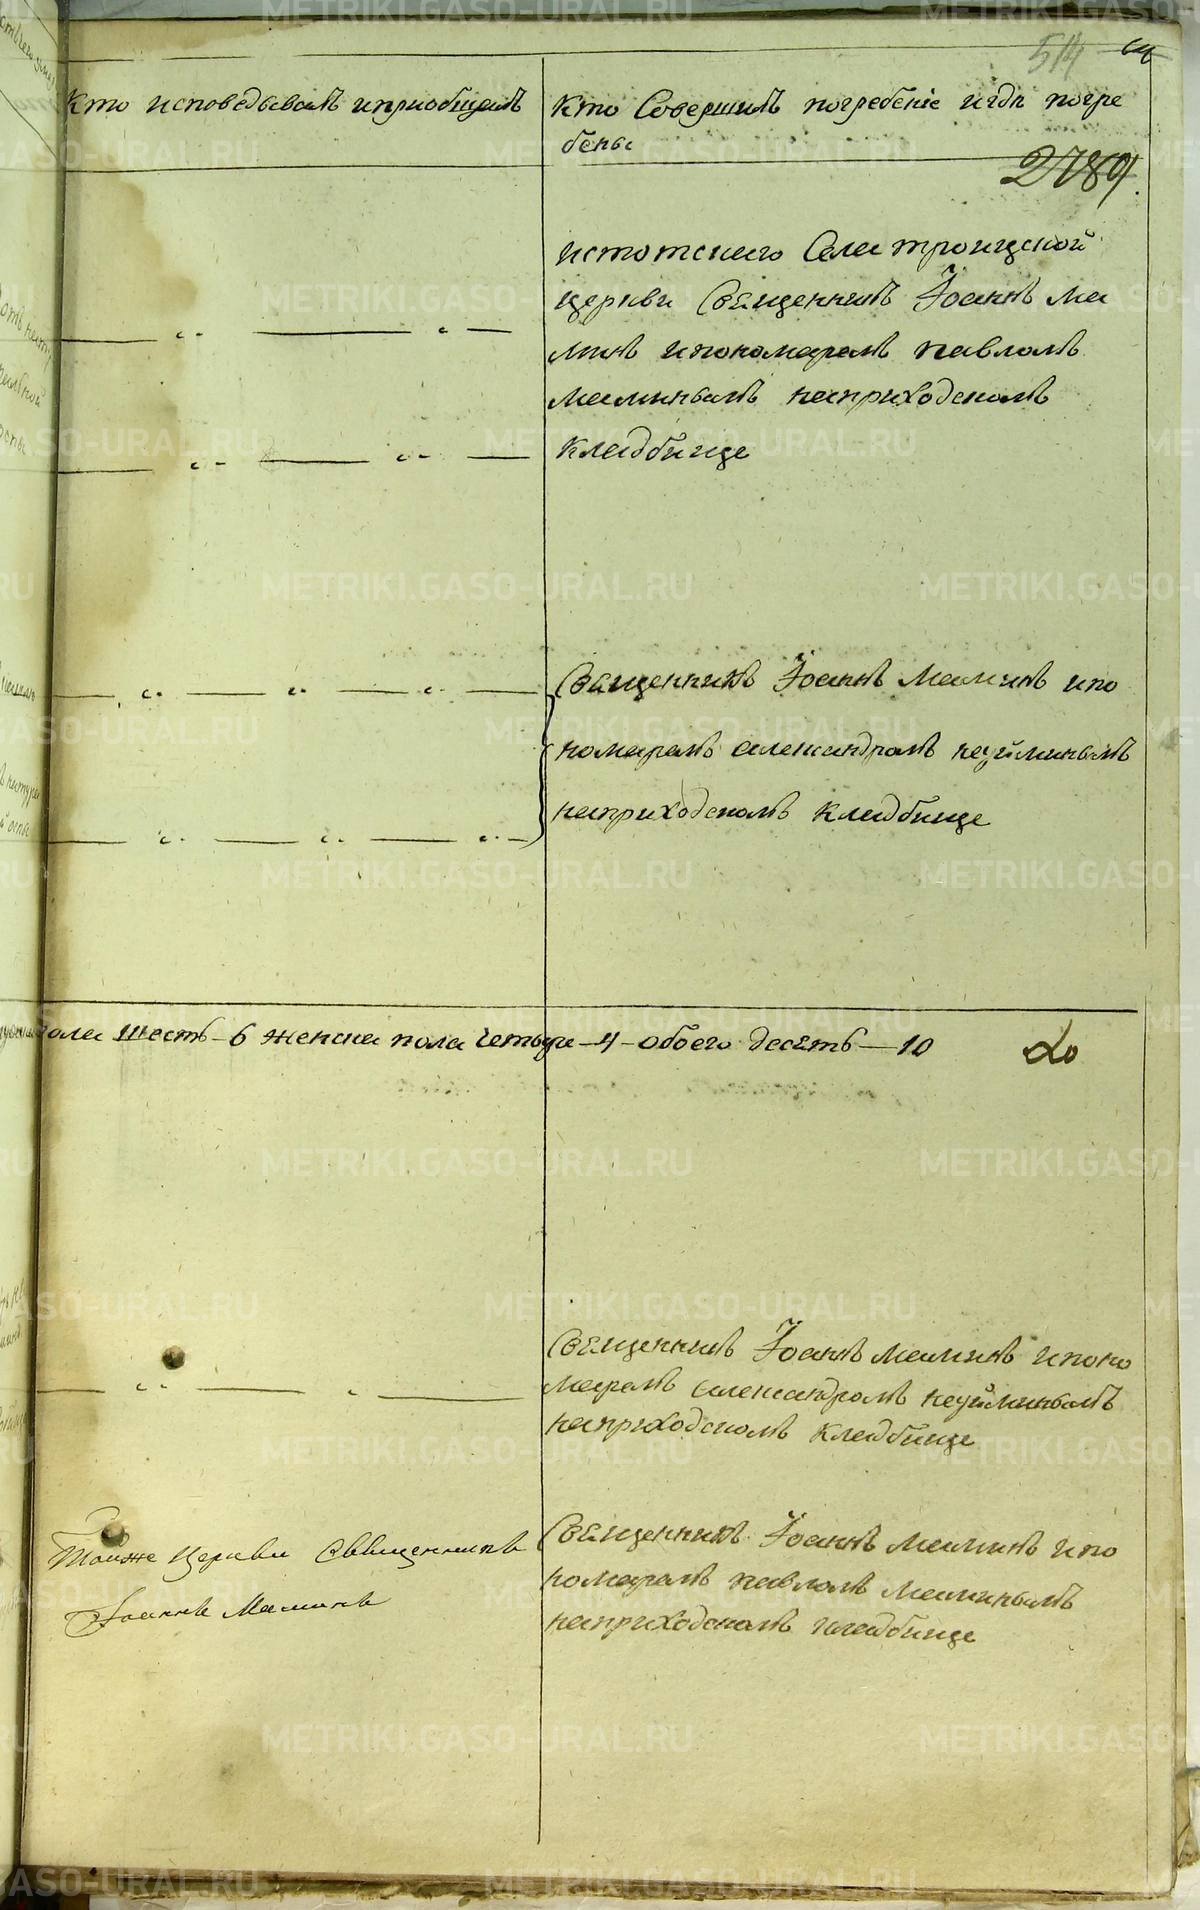 514
Кто исповѣдывалъ и приобщалъ
Кто Совершилъ погребенїе игдѣ погре
бены
2789
истотского Села троицкой
церкви Священникъ Їоаннъ Ма
минъ ипономаремъ павломъ
маминымъ наприходскомъ
кладбище
Священникъ Їоаннъ Маминъ ипо
номаремъ александромъ неуйминымъ
наприходскомъ кладбище
пола шесть – 6 женска пола четыре – 4 – обоего десять – 10
Священникъ Їоаннъ маминъ ипоно
маремъ александромъ неуйминымъ
наприходскомъ кладбище
Тойже Церкви Священникъ
Іоаннъ Маминъ
Священникъ Їоаннъ маминъ ипо
номаремъ павломъ маминымъ
наприходскомъ кладбище
METRIKI.GASO-URAL.RU